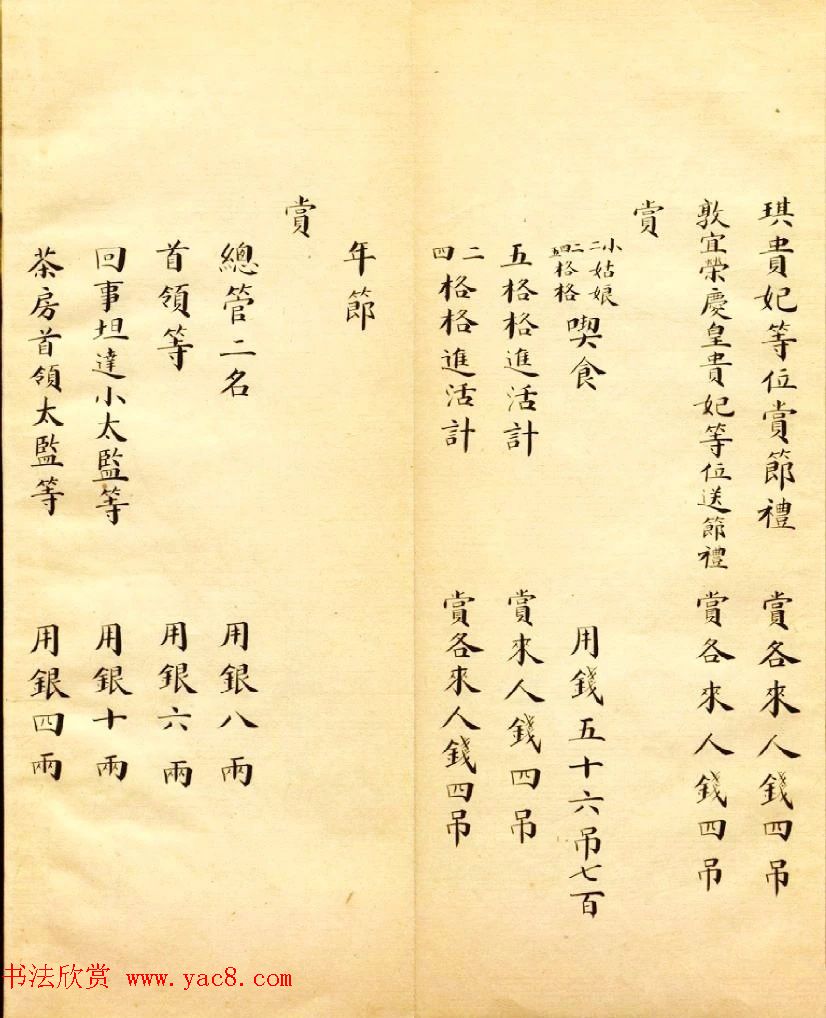 琪貴妃等位賞節禮 賞各來人錢四吊
敦宜榮慶皇貴妃等位送節禮 賞各來人錢四吊
賞
小姑娘
二二格格
四五格格
喫食 用錢五十六吊七百
五格格進活計 賞來人錢四吊
二四格格進活計 賞各來人錢四吊
年節
賞
總管二名 用銀八兩
首領等 用銀六兩
回事坦達小太監等 用銀十兩
茶房首領太監等 用銀四兩
书法欣赏 www.yac8.com